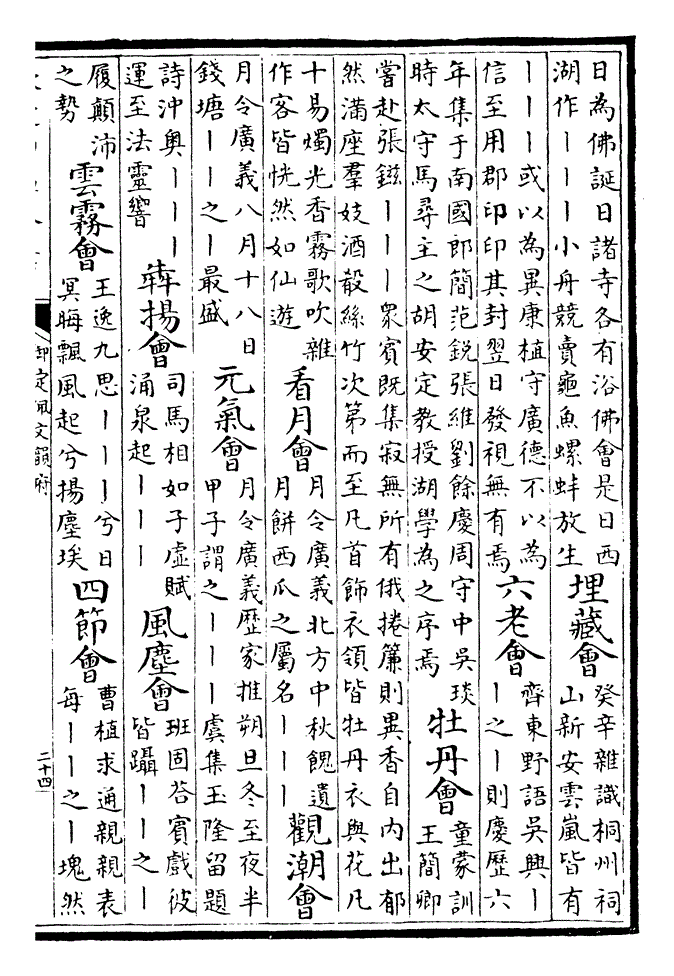 日為佛誕日諸寺各有浴佛會是日西
湖作丨丨丨小舟競賣龜魚螺蚌放生
埋藏會
癸辛雜識桐州祠
山新安雲嵐皆有
丨丨丨或以為異康植守廣德不以為
信至用郡印印其封翌日發視無有焉
六老會
齊東野語吳興丨
丨之丨則慶歷六
年集于南國郎簡范銳張維劉餘慶周守中吳琰
時太守馬尋主之胡安定教授湖學為之序焉
牡丹會
童蒙訓
王簡卿
嘗赴張鎡丨丨丨衆賓既集寂無所有俄捲簾則異香自内出郁
然滿座羣妓酒殽絲竹次第而至凡首飾衣領皆牡丹衣與花凡
十易燭光香霧歌吹雜
作客皆恍然如仙遊
看月會
月令廣義北方中秋餽遺
月餅西瓜之屬名丨丨丨
觀潮會
月令廣義八月十八日
錢塘丨丨之丨最盛
元氣會
月令廣義歷家推朔旦冬至夜半
甲子謂之丨丨丨虞集玉隆留題
詩沖奧丨丨丨
運至法靈響
犇揚會
司馬相如子虛賦
涌泉起丨丨丨
風塵會
班固荅賓戲彼
皆躡丨丨之丨
履顛沛
之勢
雲霧會
王逸九思丨丨丨兮日
冥晦飄風起兮揚塵埃
四節會
曹植求通親親表
每丨丨之丨塊然
御定佩文韻府
二十四